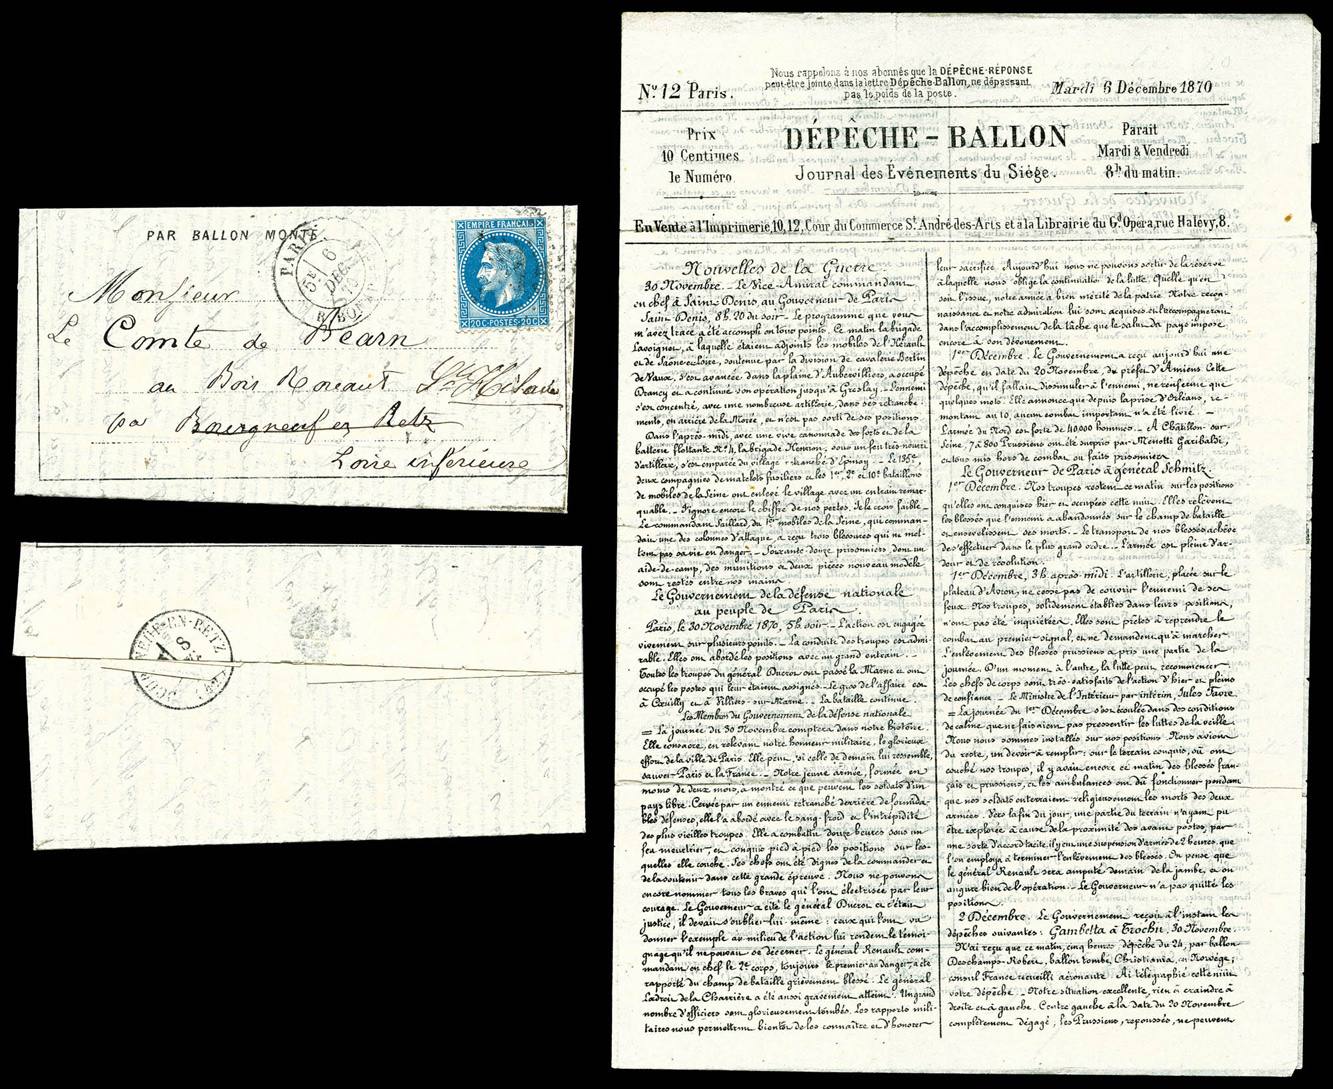 PAR BALLON MONTÉ
PARIS
5E
6
DEC.
EMPIRE FRANCAIS
20C-POSTES-20C
Monsieur
Le Comte de Béarn
au Bois Rouaut
par Bourgneuf en Retz
Loire inférieure
EN-RETZ
8
No. 12 Paris.
Nous rappelons à nos abonnés que la DÉPÊCHE-RÉPONSE
peut-être jointe dans la lettre Dépêche-Ballon, ne dépassant
pas le poids de la poste.
Mardi 6 Décembre 1870
Prix
10 Centimes
le Numéro
DÉPÊCHE-BALLON
Journal des Événements du Siége.
Parait
Mardi & Vendredi
8h. du matin.
En Vente à l'Imprimerie, 10, 12, Cour du Commerce St. André-des-Arts et à la Librairie du Gd. Opéra, rue Halévy, 8.
Nouvelles de la Guerre
30 Novembre. - Le Vice-Amiral commandant
en chef à Saint Denis, au Gouverneur de Paris
Saint Denis, 8h. 20 du soir. - Le programme que vous
m'avez tracé a été accompli en tous points. Ce matin la brigade
Lavoignet, à laquelle étaient adjoints les mobiles de l'Hérault
et de Saône-et-Loire, soutenue par la division de cavalerie Bertin
de Vaux, s'est avancée dans la plaine d'Aubervilliers, a occupé
Drancy et a continué son opération jusqu'à Groslay. - L'ennemi
s'est concentré, avec une nombreuse artillerie, dans ses retranche-
ments, en arrière de la Morée, et n'est pas sorti de ses positions.
Dans l'après-midi, avec une vive canonnade des forts et de la
batterie flottante No. 4, la brigade Henrion, sous un feu très nourri
d'artillerie, s'est emparée du village retranché d'Epinay. - Le 135e.
deux compagnies de matelots fusiliers et les 1er, 2e et 10e bataillons
de mobiles de la Seine ont enlevé le village avec un entrain remar-
quable. - J'ignore encore le chiffre de nos pertes. Je le crois faible. -
Le commandant Saillard, du 1er mobiles de la Seine, qui comman-
dait une des colonnes d'attaque, a reçu trois blessures qui ne met-
tent pas sa vie en danger. - Soixante-douze prisonniers, dont un
aide-de-camp, des munitions et deux pièces nouveau modèle
sont restés entre nos mains
Le Gouvernement de la défense nationale
au peuple de Paris.
Paris, le 30 Novembre 1870, 5h. soir. - L'action est engagée
vivement sur plusieurs points. - La conduite des troupes est admi-
rable. Elles ont abordé les positions avec un grand entrain. -
Toutes les troupes du général Ducrot ont passé la Marne et ont
occupé les postes qui leur étaient assignés. Le gros de l'affaire est
à Cœuilly et à Villiers-sur-Marne. - La bataille continue.
Les Membres du Gouvernement de la défense nationale.
= La journée du 30 Novembre comptera dans notre histoire.
Elle consacre, en relevant notre honneur militaire, le glorieux
effort de la ville de Paris. Elle peut, si celle de demain lui ressemble,
sauver Paris et la France. - Notre jeune armée, formée en
moins de deux mois, a montré ce que peuvent les soldats d'un
pays libre. Cernée par un ennemi retranché derrière de formida-
bles défenses, elle l'a abordé avec le sang-froid et l'intrépidité
des plus vieilles troupes. Elle a combattu douze heures sous un
feu meurtrier, et conquis pied à pied les positions sur les-
quelles elle couche. Ses chefs ont été dignes de la commander et
de la soutenir dans cette grande épreuve. Nous ne pouvons
encore nommer tous les braves qui l'ont électrisée par leur
courage. Le Gouverneur a cité le général Ducrot et c'était
justice, il devait s'oublier lui-même: ceux qui l'ont vu
donner l'exemple au milieu de l'action lui rendent le témoi-
gnage qu'il ne pouvait se décerner. Le général Renault com-
mandant en chef le 2e. corps, toujours le premier au danger, a été
rapporté du champ de bataille grièvement blessé. Le général
Ladreit de la Charrière a été aussi gravement atteint. Un grand
nombre d'officiers sont glorieusement tombés. Les rapports mili-
taires nous permettront bientôt de les connaître et d'honorer
leur sacrifice. Aujourd'hui nous ne pouvons sortir de la réserve
à laquelle nous oblige la continuation de la lutte. Quelle qu'en
soit l'issue, notre armée a bien mérité de la patrie. Notre recon-
naissance et notre admiration lui sont acquises et l'accompagneront
dans l'accomplissement de la tâche que le salut du pays impose
encore à son dévouement.
1er Décembre. Le Gouvernement a reçu aujourd'hui une
dépêche en date du 20 Novembre, du préfet d'Amiens. Cette
dépêche, qu'il fallait dissimuler à l'ennemi, ne renferme que
quelques mots. Elle annonce que depuis la prise d'Orléans, re-
montant au 10, aucun combat important n'a été livré. -
L'armée du Nord est forte de 40000 hommes. - A Châtillon-sur-
Seine, 7 à 800 Prussiens ont été surpris par Menotti Garibaldi,
et tous mis hors de combat ou faits prisonniers.
Le Gouverneur de Paris à général Schmitz.
1er Décembre. Nos troupes restent ce matin sur les positions
qu'elles ont conquises hier et occupées cette nuit. Elles relèvent
les blessés que l'ennemi a abandonnés sur le champ de bataille
et ensevelissent ses morts. - Le transport de nos blessés achève
de s'effectuer dans le plus grand ordre. - L'armée est pleine d'ar-
deur et de résolution.
1er Décembre, 3h. après-midi. L'artillerie, placée sur le
plateau d'Avron, ne cesse pas de couvrir l'ennemi de ses
feux. Nos troupes, solidement établies dans leurs positions,
n'ont pas été inquiétées. Elles sont prêtes à reprendre le
combat au premier signal, et ne demandent qu'à marcher.
L'enlèvement des blessés prussiens a pris une partie de la
journée. D'un moment à l'autre, la lutte peut recommencer.
Les chefs de corps sont très-satisfaits de l'action d'hier et pleins
de confiance. - Le Ministre de l'Intérieur par intérim, Jules Favre.
= La journée du 1er Décembre s'est écoulée dans des conditions
de calme que ne faisaient pas pressentir les luttes de la veille
Nous nous sommes installés sur nos positions. Nous avions
du reste, un devoir à remplir: sur le terrain conquis, où ont
couché nos troupes, il y avait encore ce matin des blessés fran-
çais et prussiens, et les ambulances ont dû fonctionner pendant
que nos soldats enterraient religieusement les morts des deux
armées. Vers la fin du jour, une partie du terrain n'ayant pu
être explorée à cause de la proximité des avant-postes, par
une sorte d'accord tacite, il y eut une suspension d'armes de 2 heures, que
l'on employa à terminer l'enlèvement des blessés. On pense que
le général Renault sera amputé demain de la jambe, et on
augure bien de l'opération. - Le Gouverneur n'a pas quitté les
positions.
2 Décembre. Le Gouvernement reçoit à l'instant les
dépêches suivantes: Gambetta à Trochu. 30 Novembre.
N'ai reçu que ce matin, cinq heures, dépêche du 24, par ballon
Deschamps-Robert, ballon tombé, Christiania, en Norvège;
consul France recueilli aéronaute. Ai télégraphié cette nuit
votre dépêche. - Notre situation excellente, rien à craindre à
droite et à gauche. Centre gauche à la date du 20 Novembre
complètement dégagé, les Prussiens, repoussés, ne peuvent